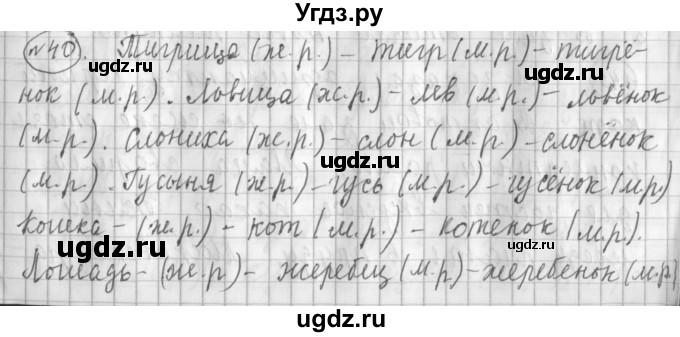 Угдз.ру
№40. Тигрица (ж.р.) – тигр (м.р.) – тигрё-
нок (м.р.). Львица (ж.р.) – лев (м.р.) – львёнок
(м.р.). Слониха (ж.р.) – слон (м.р.) – слонёнок
(м.р.). Гусыня (ж.р.) – гусь (м.р.) – гусёнок (м.р.)
Кошка – (ж.р.) – кот (м.р.) – котенок (м.р.).
Лошадь – (ж.р.) – жеребец (м.р.) – жеребенок (м.р.)
ugdz.ru ugdz.ru
ugdz.ru ugdz.ru
ugdz.ru ugdz.ru
ugdz.ru ugdz.ru